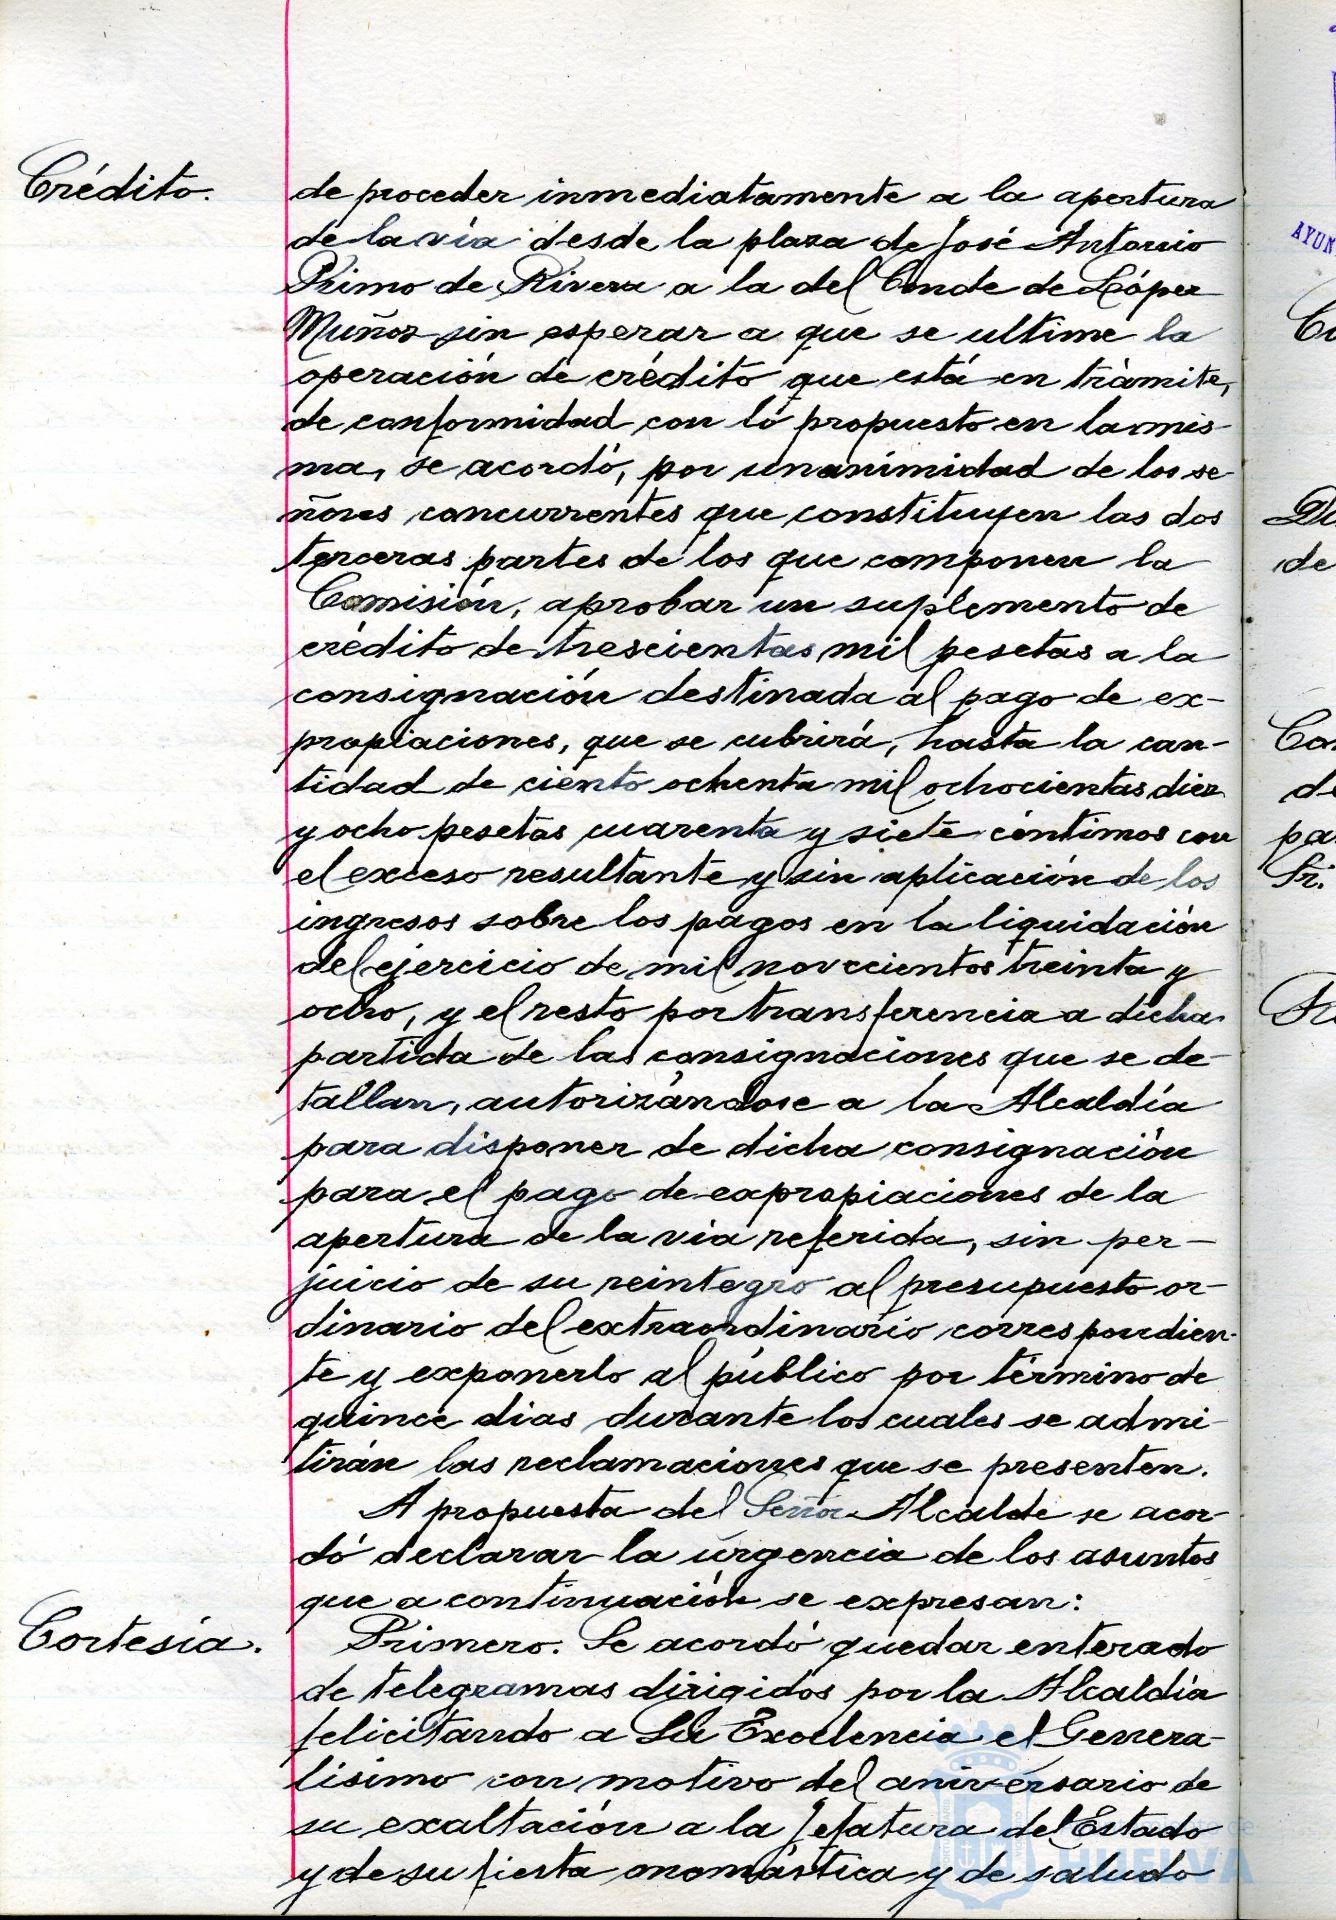 Crédito.
de proceder inmediatamente a la apertura
de la vía desde la plaza de José Antonio
Primo de Rivera a la del Conde de López
Muñoz sin esperar a que se ultime la
operación de crédito que está en trámite,
de conformidad con lo propuesto en la mis-
ma, se acordó, por unanimidad de los se-
ñores concurrentes que constituyen las dos
terceras partes de los que componen la
Comisión, aprobar un suplemento de
crédito de trescientas mil pesetas a la
consignación destinada al pago de ex-
propiaciones, que se cubrirá, hasta la can-
tidad de ciento ochenta mil ochocientas diez
y ocho pesetas cuarenta y siete céntimos con
el exceso resultante y sin aplicación de los
ingresos sobre los pagos en la liquidación
del ejercicio de mil novecientos treinta y
ocho, y el resto por transferencia a dicha
partida de las consignaciones que se de-
tallan, autorizándose a la Alcaldía
para disponer de dicha consignación
para el pago de expropiaciones de la
apertura de la vía referida, sin per-
juicio de su reintegro al presupuesto or-
dinario del extraordinario correspondien-
te y exponerlo al público por término de
quince dias durante los cuales se admi-
tirán las reclamaciones que se presenten.
A propuesta del Señor Alcalde se acor-
dó declarar la urgencia de los asuntos
que a continuación se expresan:
Cortesía.
Primero. Se acordó quedar enterado
de telegramas dirigidos por la Alcaldía
felicitando a Su Excelencia el Genera-
lísimo con motivo del aniversario de
su exaltación a la Jefatura del Estado
y de su fiesta onomástica y de saludo
HUELVA
AYUN
Co
Di
de
Con
de
pa
Sr.